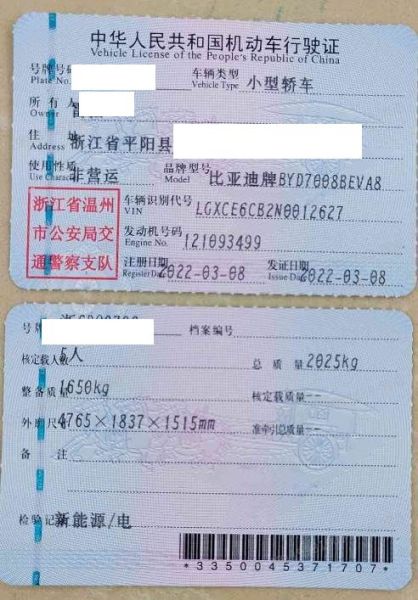 中华人民共和国机动车行驶证
Vehicle License of the People's Republic of China
号牌号码 车辆类型 小型轿车
Plate No. Vehicle Type
所有人
Owner
住址 浙江省平阳县
Address
使用性质 非营运 品牌型号 比亚迪牌BYD7008BEVA8
Use Character Model
浙江省温州
市公安局交
通警察支队
车辆识别代号 LGXCE6CB2N0012627
VIN
发动机号码 121093499
Engine No.
注册日期 2022-03-08 发证日期 2022-03-08
Register Date Issue Date
号牌 档案编号
核定载人数 5人 总质量 2025kg
整备质量 1650kg 核定载质量 --
外廓尺寸 4765×1837×1515mm 准牵引总质量 --
备注
检验记录 新能源/电
*3350045371707*